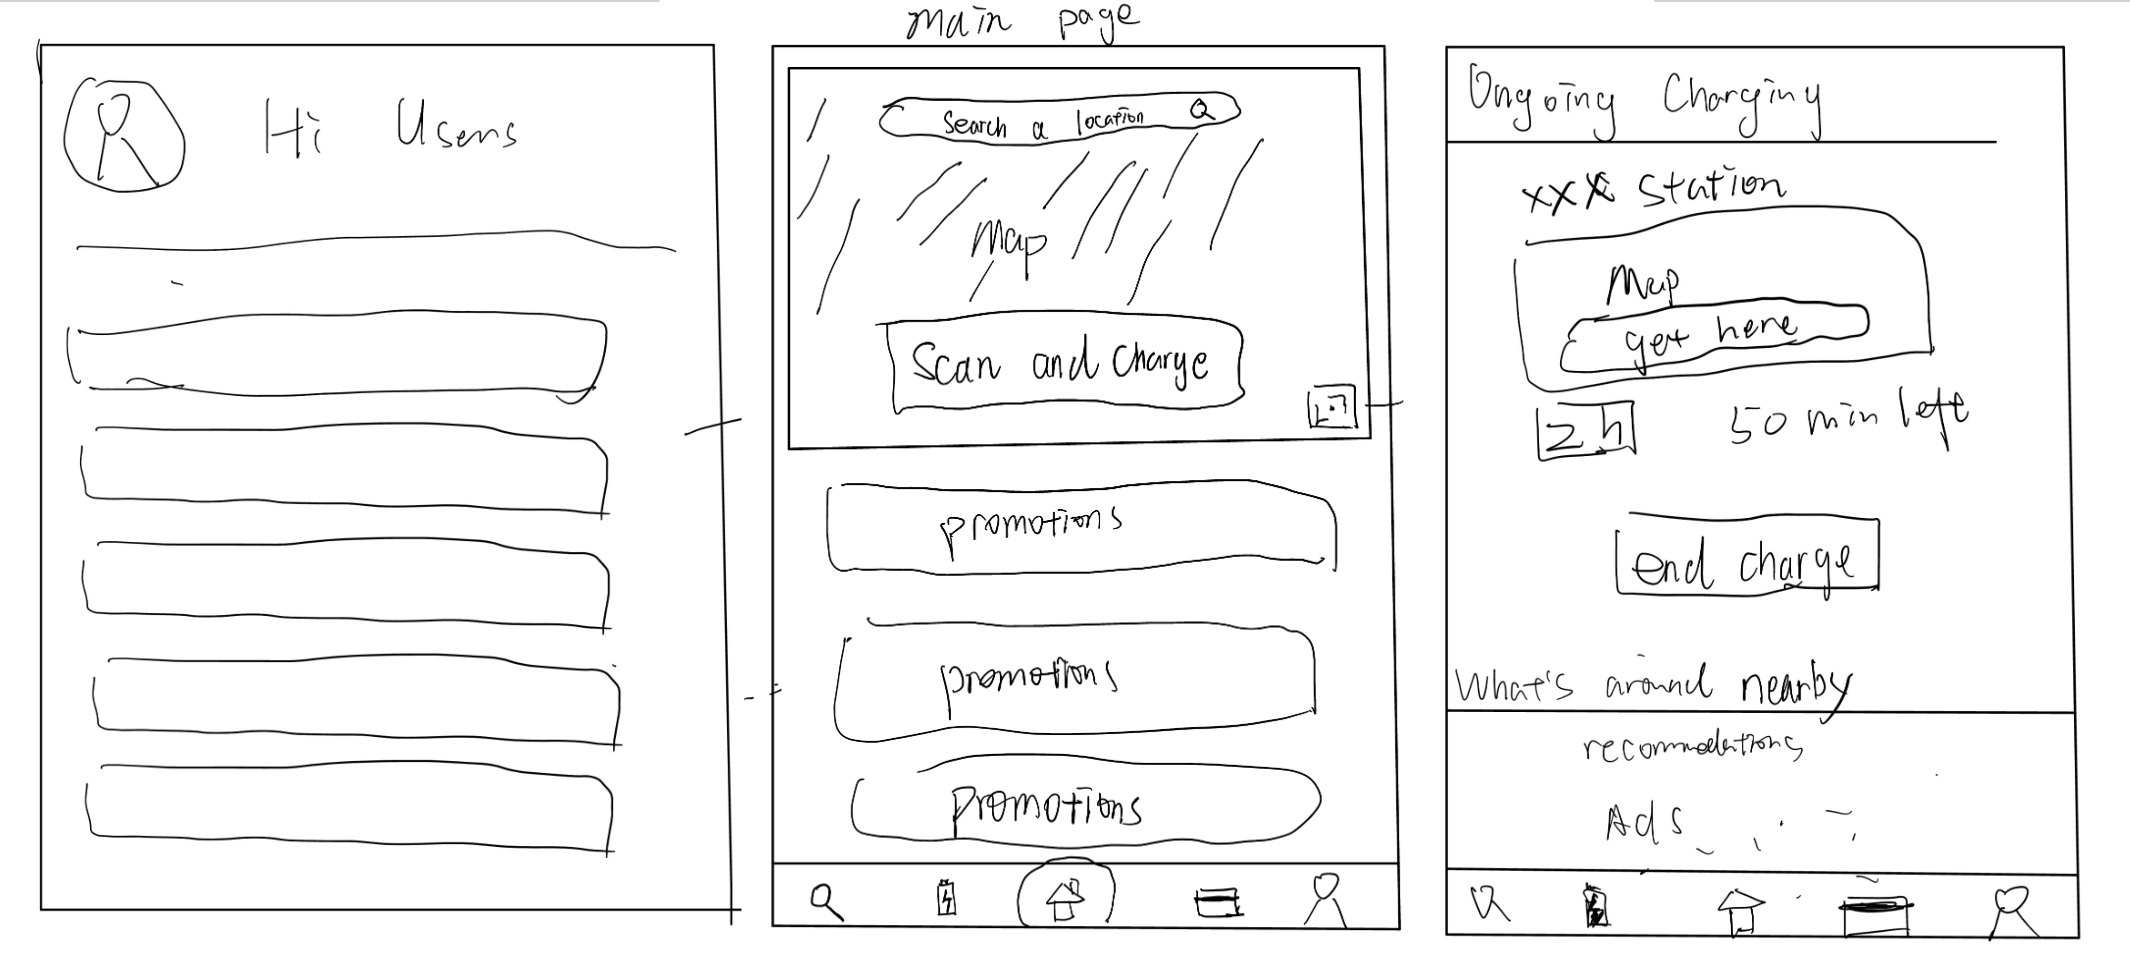 main page
Hi Users
Search a location
Map
Scan and Charge
promotions
promotions
promotions
Ongoing Charging
xxx Station
Map
get here
2h
50 min left
end charge
What's around nearby
recommodations
Ads